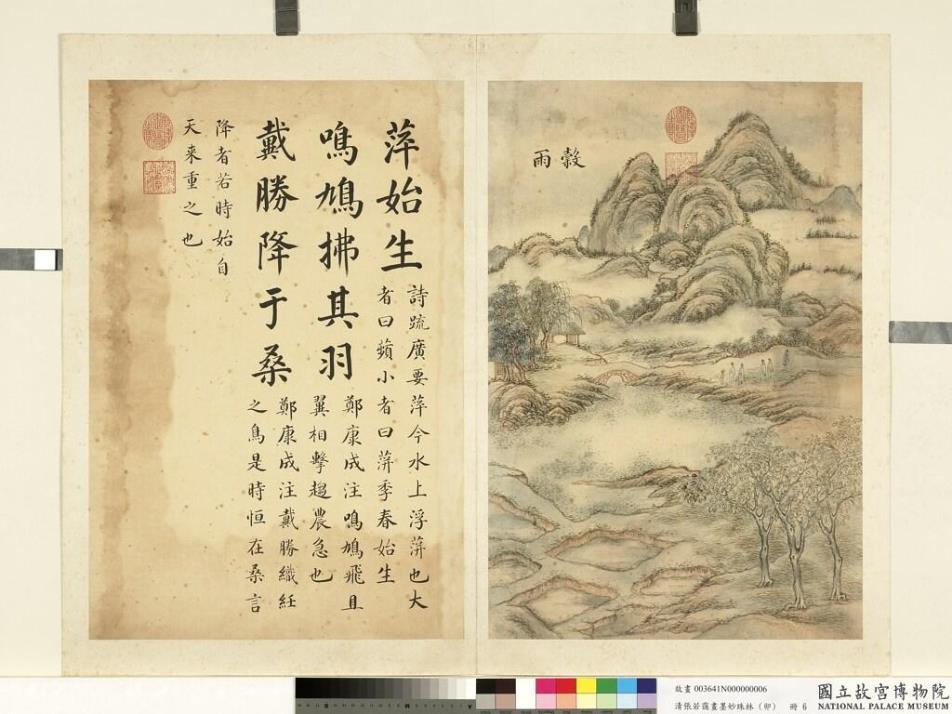 穀雨
萍始生
詩疏廣要萍今水上浮蓱也大
者曰蘋小者曰蓱季春始生
鳴鳩拂其羽
鄭康成注鳴鳩飛且
翼相擊趨農急也
戴勝降于桑
鄭康成注戴勝織紝
之鳥是時恒在桑言
降者若時始自
天來重之也
故畫 003641N000000006
清張若靄畫墨妙珠林（卯） 冊 6
國立故宮博物院
NATIONAL PALACE MUSEUM